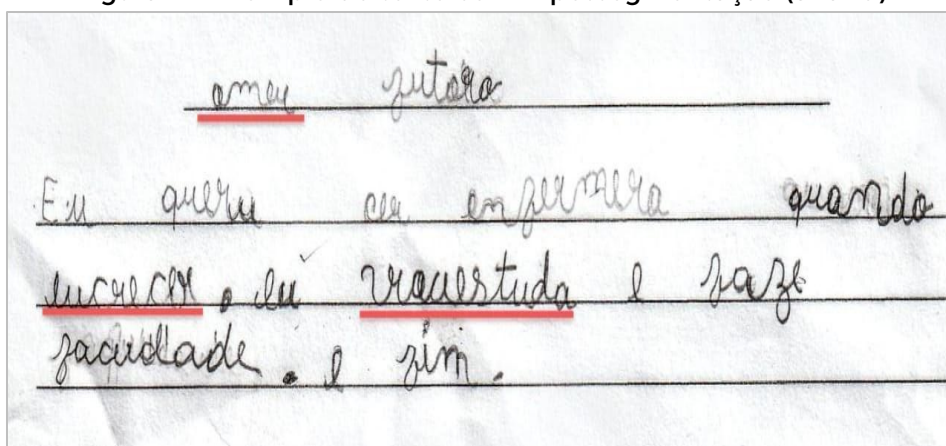 omeu futoro
Eu queru cer enfermera quando
eucrecer, eu vouestuda e faze
faculdade. e fim.